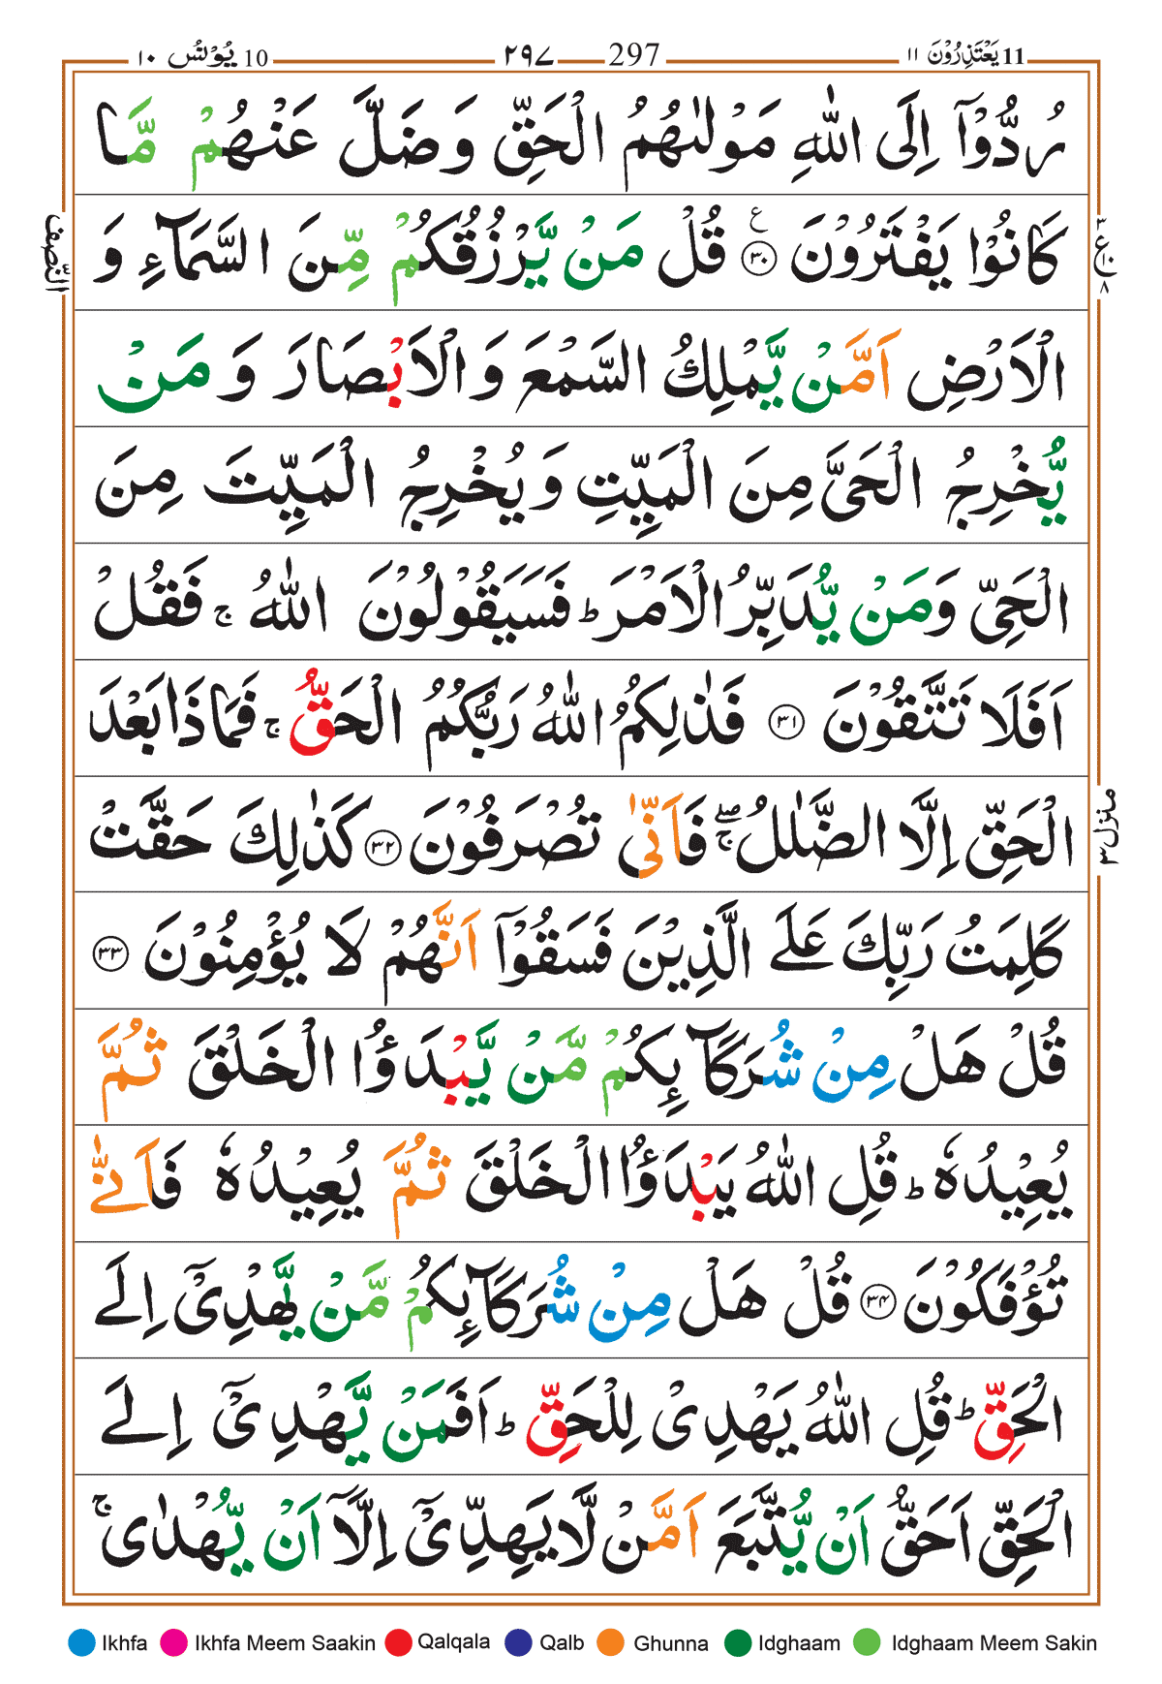 11 يَعْتَذِرُوْنَ ١١
297 ٢٩٧
10 يُوْنُسُ ١٠
رُدُّوْۤا اِلَى اللّٰهِ مَوْلٰىهُمُ الْحَقِّ وَضَلَّ عَنْهُمْ مَّا
كَانُوْا يَفْتَرُوْنَ ﴿٣٠﴾ ع قُلْ مَنْ يَّرْزُقُكُمْ مِّنَ السَّمَآءِ وَ
الْاَرْضِ اَمَّنْ يَّمْلِكُ السَّمْعَ وَ الْاَبْصَارَ وَ مَنْ
يُّخْرِجُ الْحَىَّ مِنَ الْمَيِّتِ وَيُخْرِجُ الْمَيِّتَ مِنَ
الْحَىِّ وَمَنْ يُّدَبِّرُ الْاَمْرَ ؕ فَسَيَقُوْلُوْنَ اللّٰهُ ۚ فَقُلْ
اَفَلَا تَتَّقُوْنَ ﴿٣١﴾ فَذٰلِكُمُ اللّٰهُ رَبُّكُمُ الْحَقُّ ۚ فَمَاذَا بَعْدَ
الْحَقِّ اِلَّا الضَّلٰلُ ۖۚ فَاَنّٰى تُصْرَفُوْنَ ﴿٣٢﴾ كَذٰلِكَ حَقَّتْ
كَلِمَتُ رَبِّكَ عَلَى الَّذِيْنَ فَسَقُوْۤا اَنَّهُمْ لَا يُؤْمِنُوْنَ ﴿٣٣﴾
قُلْ هَلْ مِنْ شُرَكَآئِكُمْ مَّنْ يَّبْدَؤُا الْخَلْقَ ثُمَّ
يُعِيْدُهٗ ؕ قُلِ اللّٰهُ يَبْدَؤُا الْخَلْقَ ثُمَّ يُعِيْدُهٗ فَاَنّٰى
تُؤْفَكُوْنَ ﴿٣٤﴾ قُلْ هَلْ مِنْ شُرَكَآئِكُمْ مَّنْ يَّهْدِىْۤ اِلَى
الْحَقِّ ؕ قُلِ اللّٰهُ يَهْدِىْ لِلْحَقِّ ؕ اَفَمَنْ يَّهْدِىْۤ اِلَى
الْحَقِّ اَحَقُّ اَنْ يُّتَّبَعَ اَمَّنْ لَّا يَهِدِّىْۤ اِلَّاۤ اَنْ يُّهْدٰى ۚ
النِّصْف
٣ ع ١٠ ٨
منزل ٣
Ikhfa Ikhfa Meem Saakin Qalqala Qalb Ghunna Idghaam Idghaam Meem Sakin